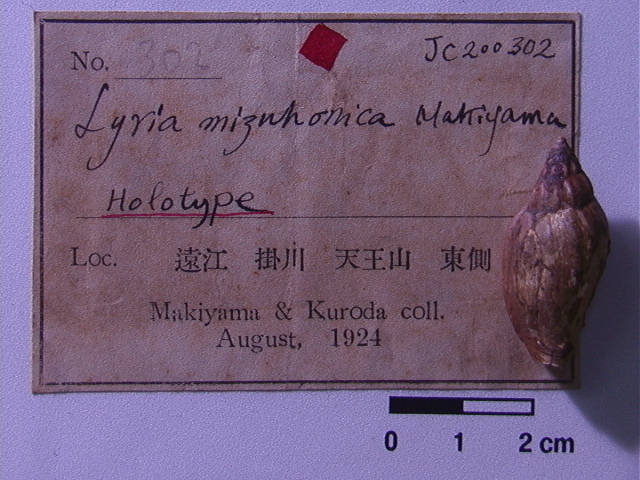 No. 302
JC200302
Lyria mizuhonica Makiyama
Holotype
Loc. 遠江 掛川 天王山 東側
Makiyama & Kuroda coll.
August, 1924
0 1 2 cm